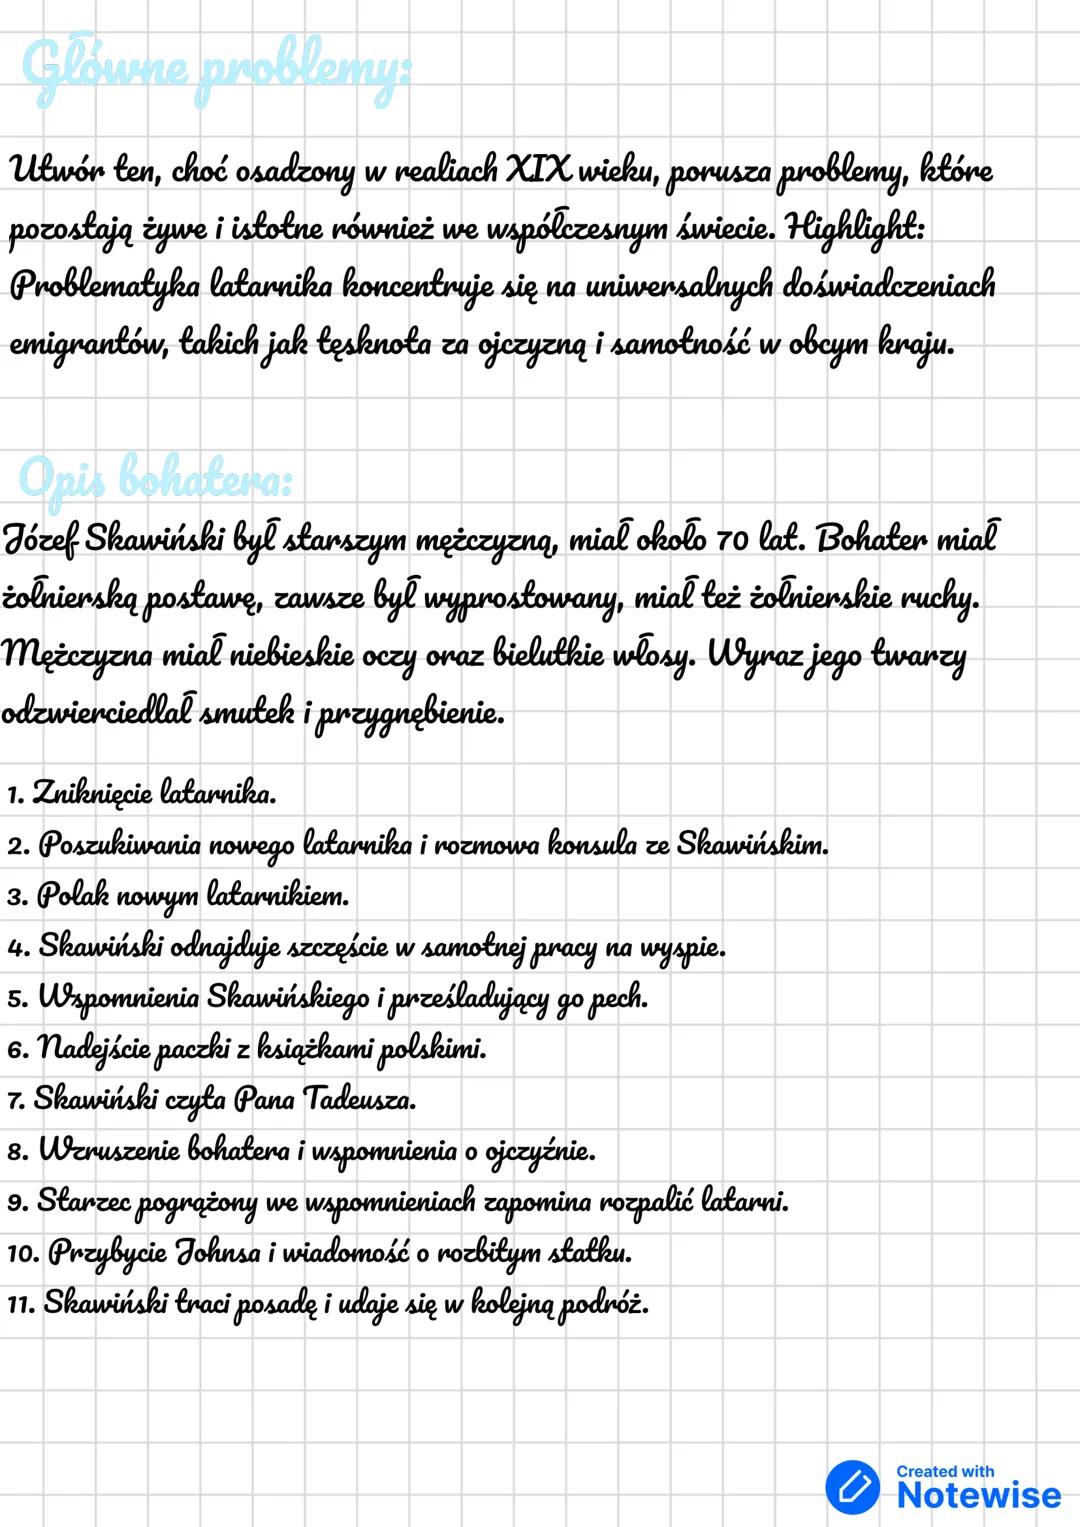 Główne problemy:
Utwór ten, choć osadzony w realiach XIX wieku, porusza problemy, które
pozostają żywe i istotne również we współczesnym świecie. Highlight:
Problematyka latarnika koncentruje się na uniwersalnych doświadczeniach
emigrantów, takich jak tęsknota za ojczyzną i samotność w obcym kraju.
Opis bohatera:
Józef Skawiński był starszym mężczyzną, miał około 70 lat. Bohater miał
żołnierską postawę, zawsze był wyprostowany, miał też żołnierskie ruchy.
Mężczyzna miał niebieskie oczy oraz bielutkie włosy. Wyraz jego twarzy
odzwierciedlał smutek i przygnębienie.
1. Zniknięcie latarnika.
2. Poszukiwania nowego latarnika i rozmowa konsula ze Skawińskim.
3. Polak nowym latarnikiem.
4. Skawiński odnajduje szczęście w samotnej pracy na wyspie.
5. Wspomnienia Skawińskiego i prześladujący go pech.
6. Nadejście paczki z książkami polskimi.
7. Skawiński czyta Pana Tadeusza.
8. Wzruszenie bohatera i wspomnienia o ojczyźnie.
9. Starzec pogrążony we wspomnieniach zapomina rozpalić latarni.
10. Przybycie Johnsa i wiadomość o rozbitym statku.
11. Skawiński traci posadę i udaje się w kolejną podróż.
Created with
Notewise